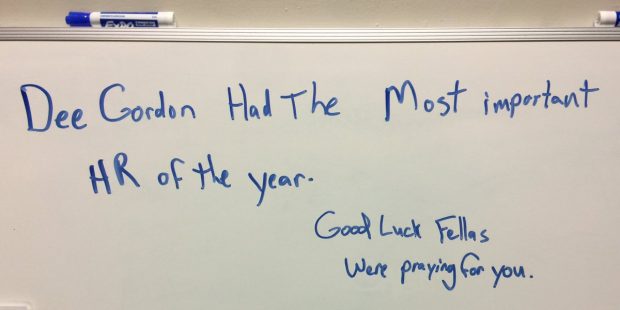 EXPO
Dee Gordon Had The Most important
HR of the year.
Good Luck Fellas
Were praying for you.